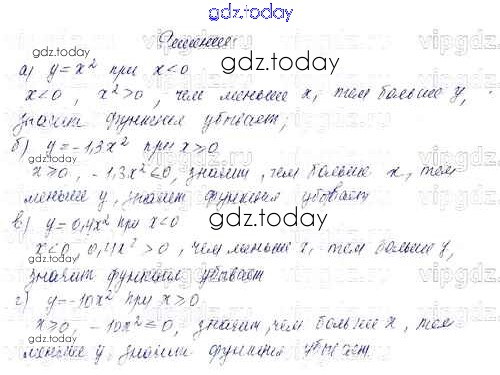 gdz.today
Решение
gdz.today
а) y = x² при x<0
x<0, x²>0, чем меньше x, тем больше y,
значит функция убывает;
gdz.today
б) y = -1,3x² при x⩾0
x⩾0, -1,3x²⩽0, значит, чем больше x, тем
меньше y, значит функция убывает
gdz.today
в) y = 0,4x² при x<0
x<0 0,4x²>0, чем меньше x, тем больше y,
значит функция убывает
gdz.today
г) y = -10x² при x⩾0
x⩾0, -10x²⩽0, значит, чем больше x, тем
меньше y, значит функция убывает.
gdz.today